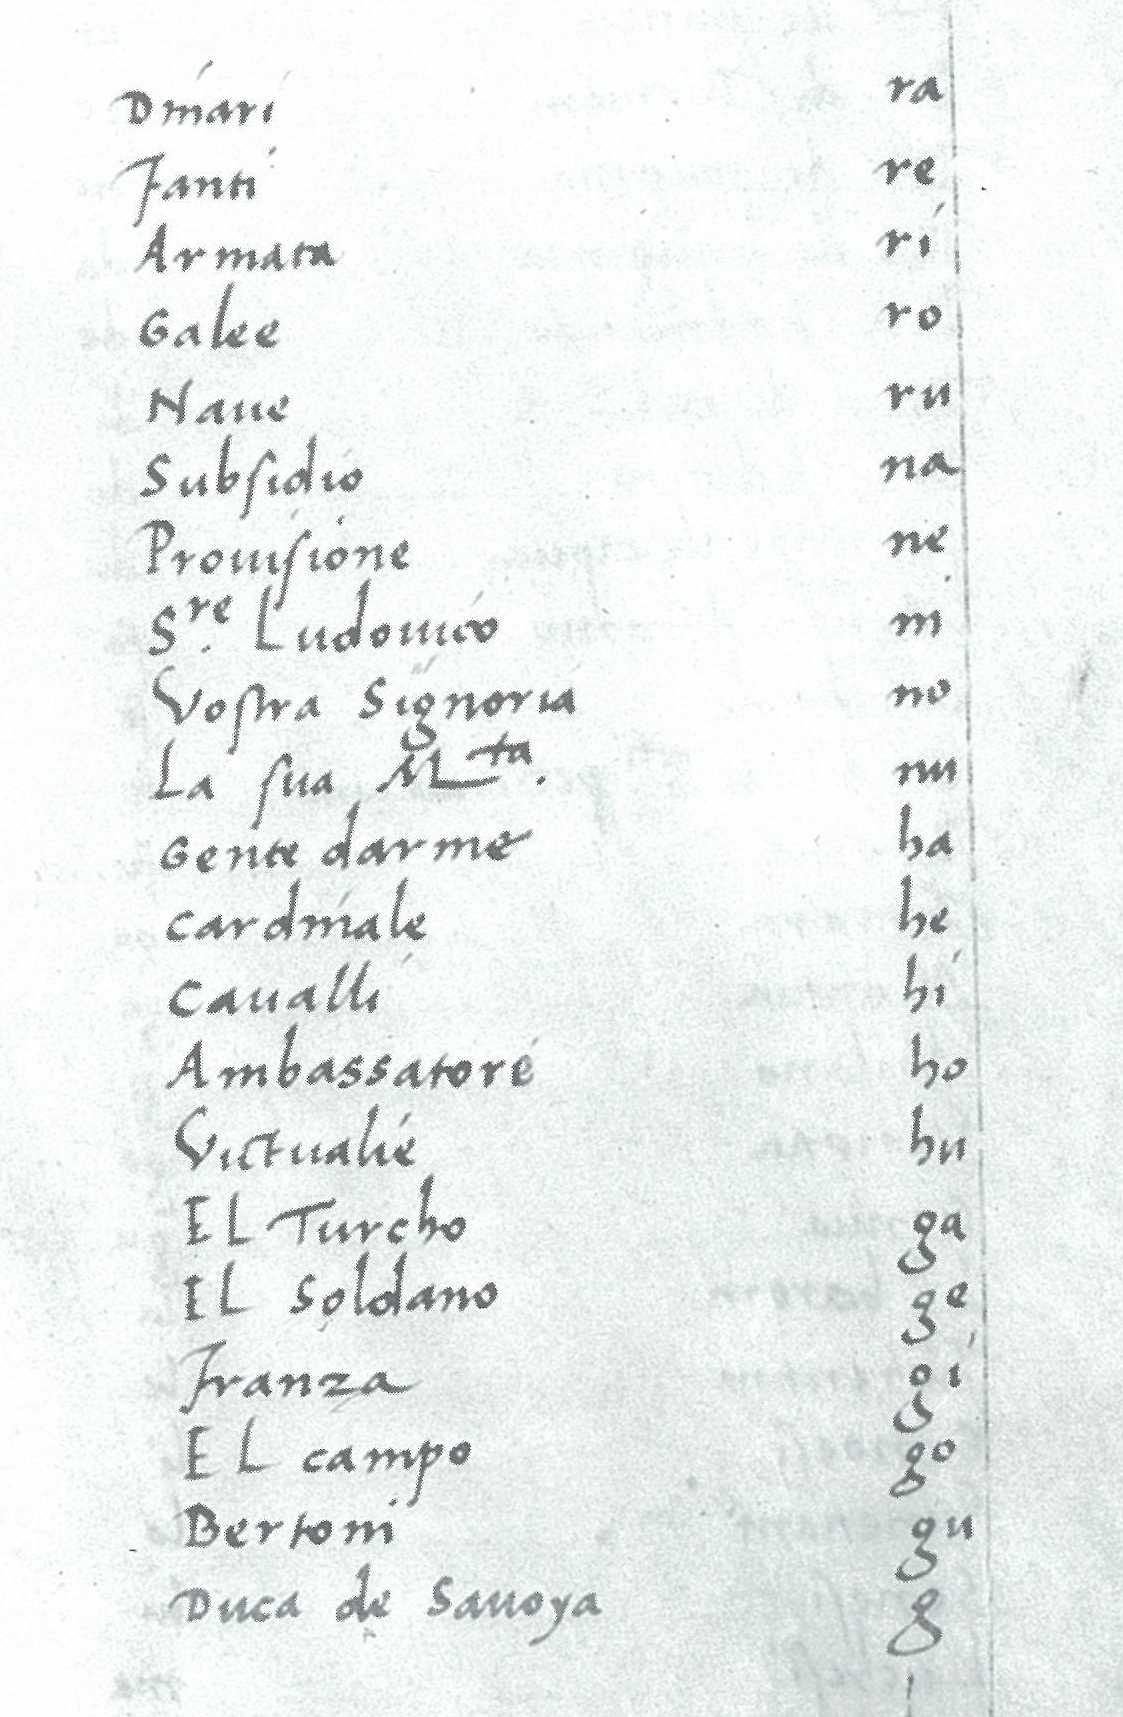 Dinari ra
Fanti re
Armata ri
Galee ro
Naue ru
Subsidio na
Prouisione ne
Sre. Ludouico ni
Vostra Signoria no
La sua Mta. nu
Gente darme ha
Cardinale he
Caualli hi
Ambassatore ho
Victualie hu
El Turcho ga
El Soldano ge
Franza gi
El campo go
Bertoni gu
Duca de Sauoya g